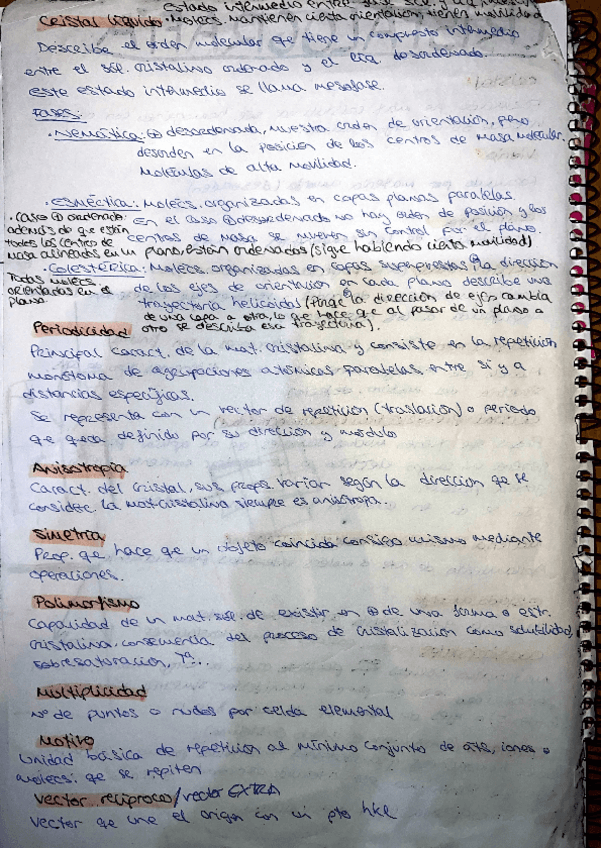 estado intermedio entre
Cristal líquido · Molecs. mantienen cierta orientación, tienen movilidad
Describe el orden molecular qe tiene un compuesto intermedio
entre el sol. cristalino ordenado y el líq. desordenado.
este estado intermedio se llama mesofase.
Fases:
· Nemática: ⊕ desordenada, muestra orden de orientación, pero
desorden en la posición de los centros de masa molecular.
Moléculas de alta movilidad.
· Esméctica: Molecs. organizadas en capas planas paralelas.
En el caso ⊕ desordenado no hay orden de posición y los
centros de masa se mueven sin control por el plano.
· Caso ⊕ ordenado:
además de que están
todos los centros de
masa alineados en un plano, están ordenados (sigue habiendo cierta movilidad)
· Colestérica: Molecs. organizadas en capas superpuestas, la dirección
de los ejes de orientación en cada plano describe una
trayectoria helicoidal (Pnge la dirección de ejes cambia
de una capa a otra, lo que hace qe al pasar de un plano a
otro se describa esa trayectoria).
Todas molecs.
orientadas en el
plano
Periodicidad
Principal caract. de la mat. cristalina y consiste en la repetición
monótona de agrupaciones atómicas paralelas entre sí y a
distancias específicas.
Se representa con un vector de repetición (traslación) o periodo
qe queda definido por su dirección y módulo
Anisotropía
Caract. del cristal, sus props. varían según la dirección qe se
considere. La mat. cristalina siempre es anisótropa.
Simetría
Prop. qe hace qe un objeto coincida consigo mismo mediante
operaciones.
Polimorfismo
Capacidad de un mat. sol. de existir en ⊕ de una forma o estr.
cristalina, consecuencia del proceso de cristalización como solubilidad,
sobresaturación, Tª...
Multiplicidad
Nº de puntos o nudos por celda elemental
Motivo
Unidad básica de repetición al mínimo conjunto de áts, iones o
molecs. qe se repiten
Vector recíproco/vector EXTRA
Vector qe une el origen con un pto hkl